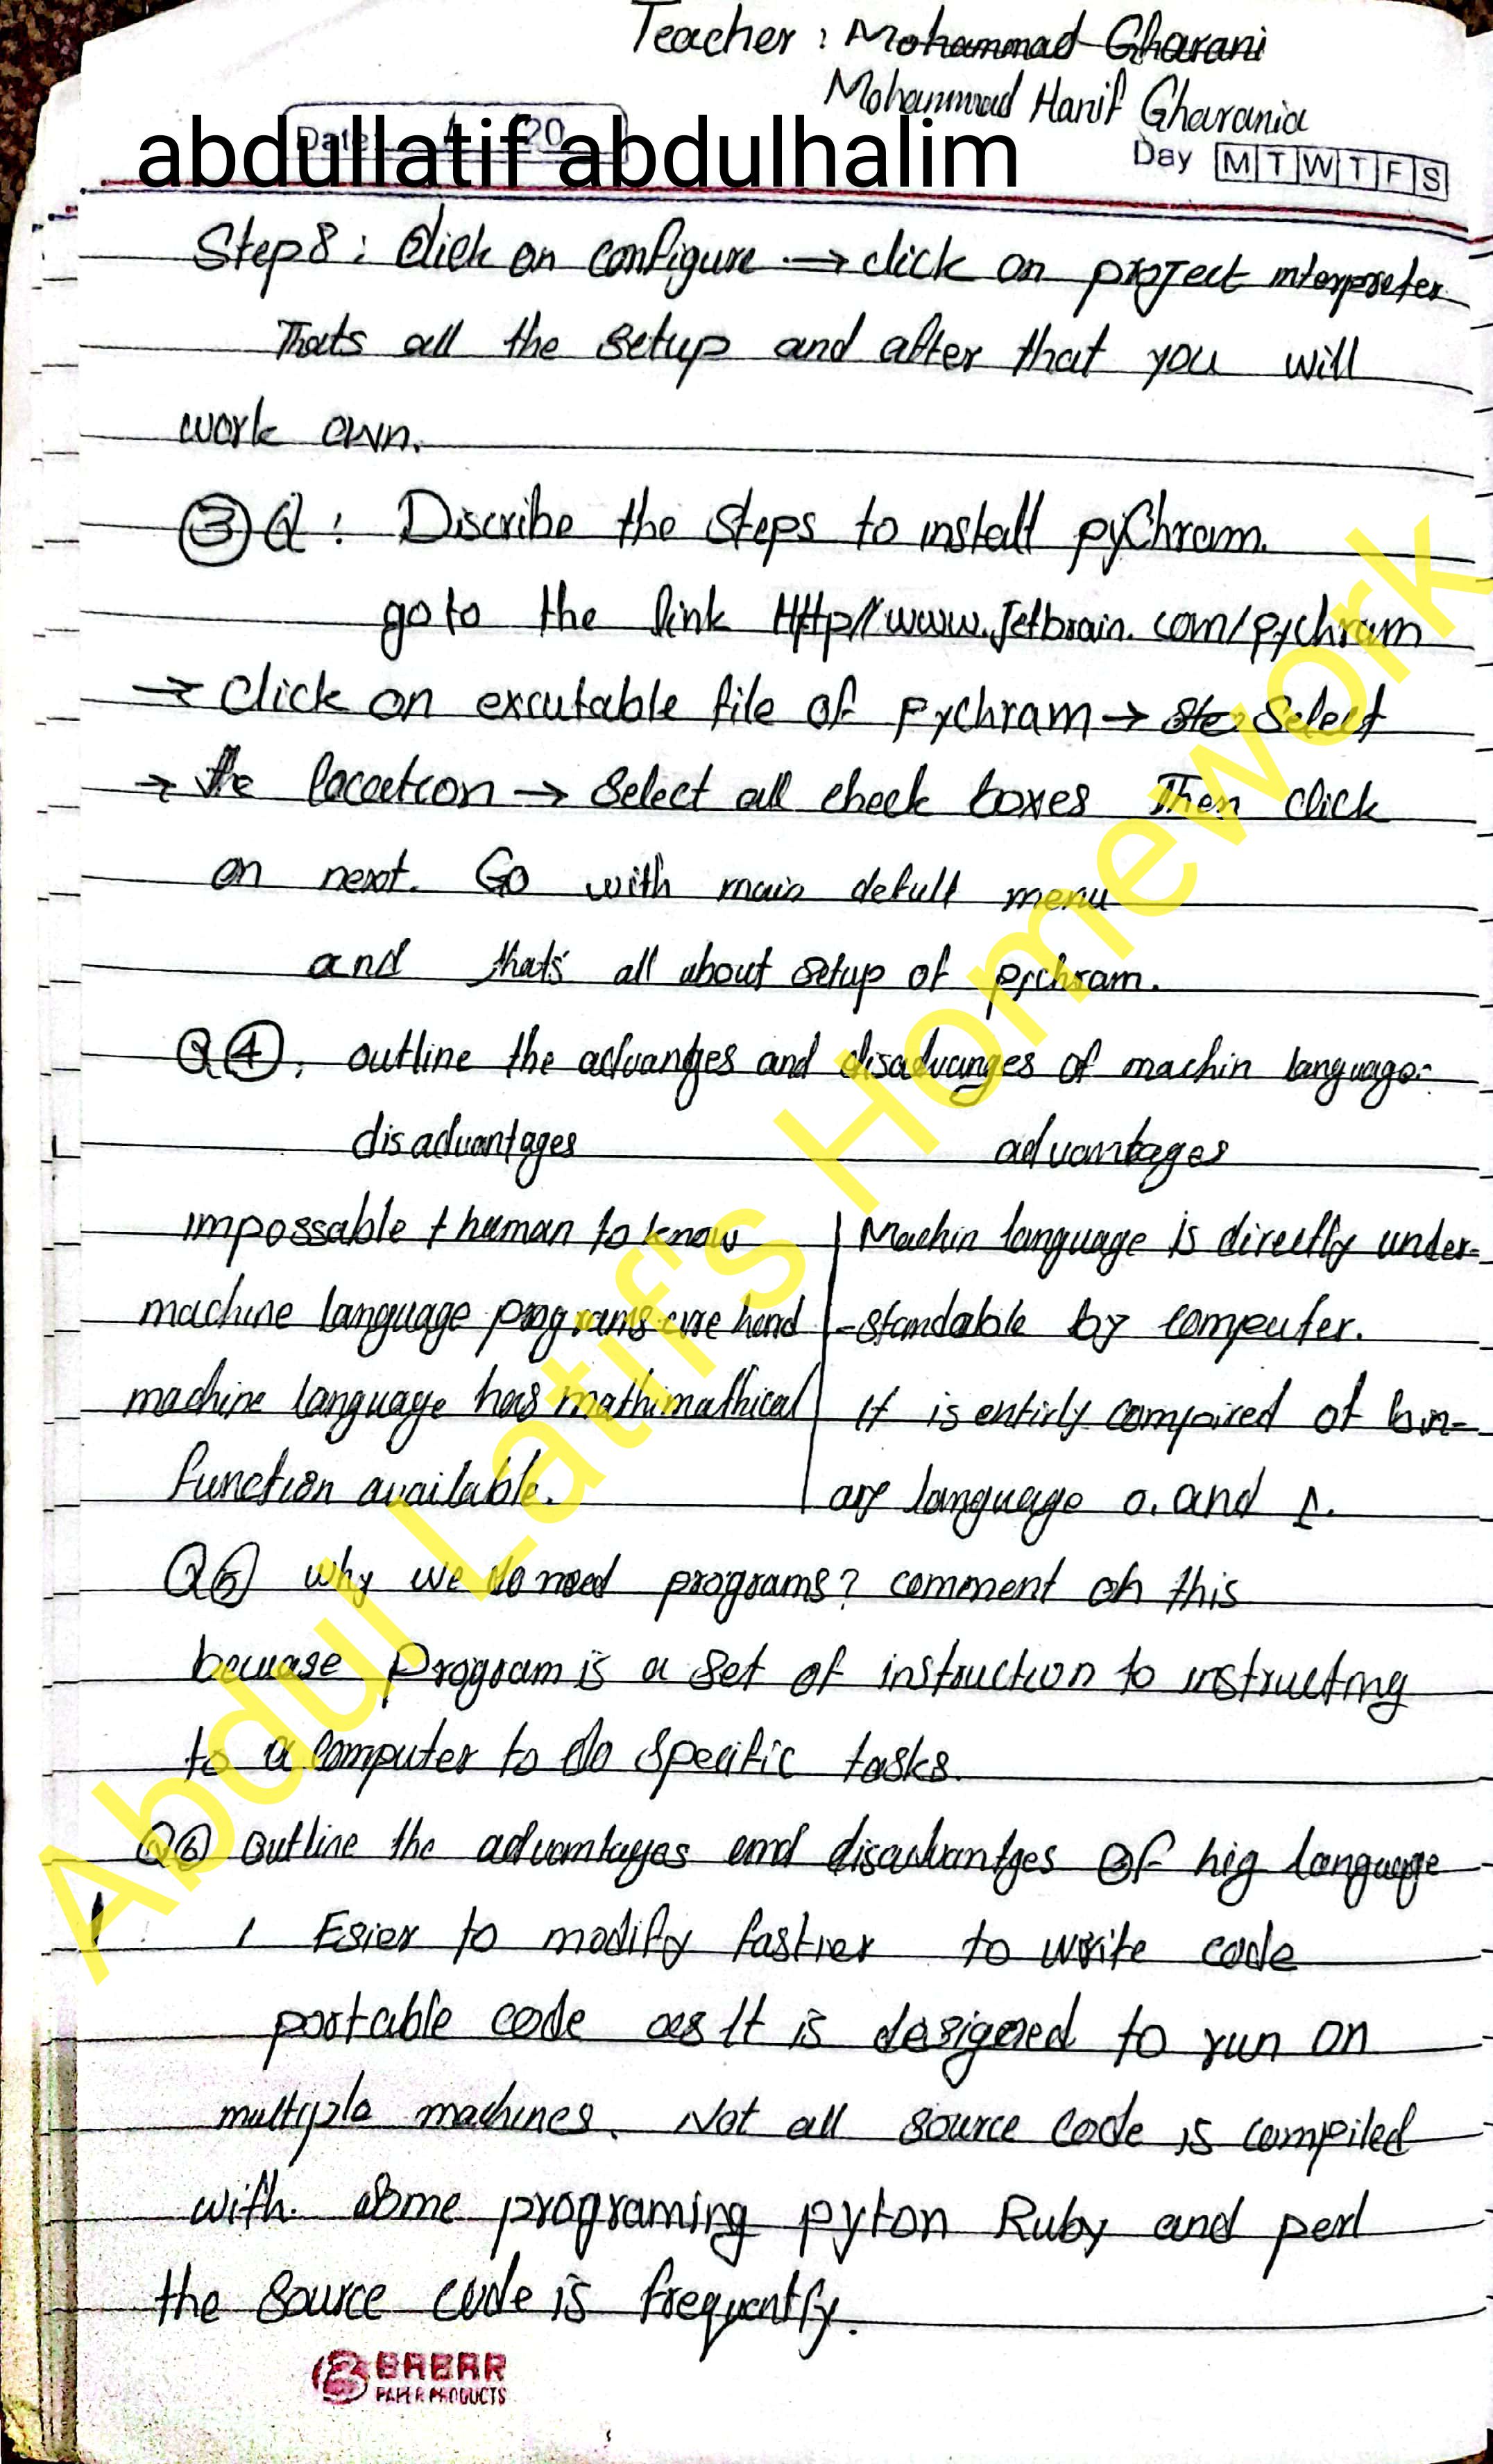 Teacher : Mohammad Gharani
Mohammad Hanif Gharania
Date: 20
abdullatif abdulhalim
Day M T W T F S
Step 8 : Click on configure → click on project interpreter
Thats all the setup and after that you will
work own.
③ Q : Discribe the steps to install pyChram.
go to the link Http//www.Jetbrain.com/pychram
→ Click on excutable file of pychram → Ste Select
→ the location → Select all check boxes Then click
on next. Go with main defult menu
and thats all about setup of pychram.
Q ④ : outline the advantges and disadvanges of machin language:-
disadvantages advantages
impossable t human to know | Machin language is directly under-
machine language programs are hand | -standable by computer.
machine language has mathimathical | It is entirly compaired of bin-
function available. | ary language 0, and 1.
Q⑤ why we do need programs? comment on this
becuase Program is a set of instruction to instructing
to a computer to do specific tasks.
Q⑥ outline the advantages and disadvantges of hig language
1 Esier to modify fastrer to write code
portable code as It is designed to run on
multiple machines. Not all source code is compiled
with. some programing pyton Ruby and perl
the source code is frequently.
Abdul Latif's Homework
BABAR
PAPER PRODUCTS